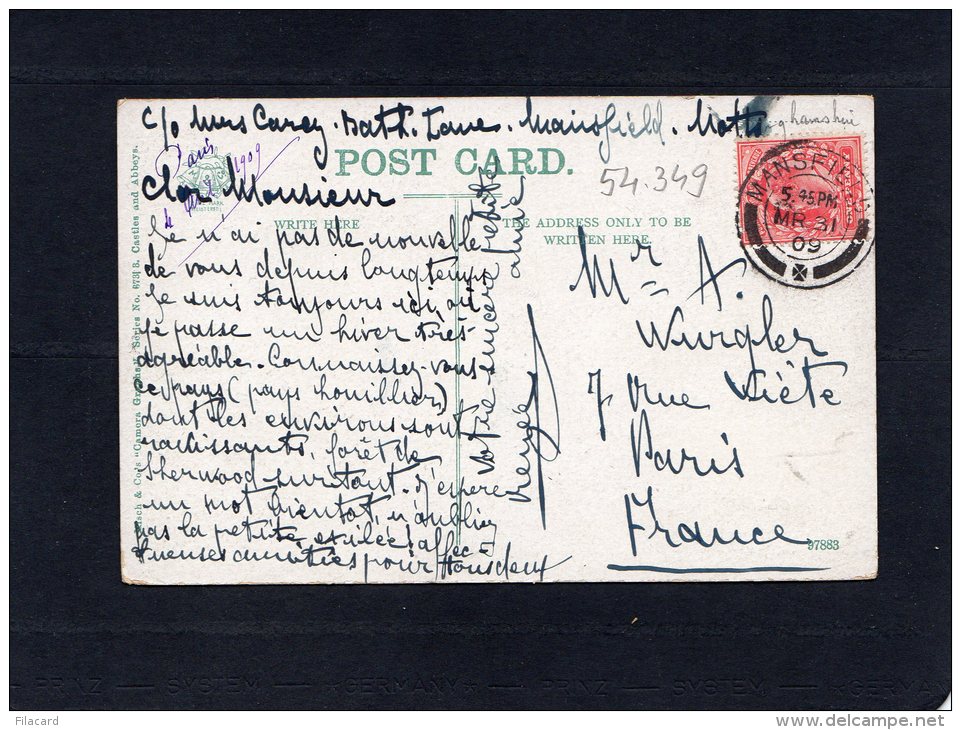 c/o Mrs Carey. Bath. Lane. Mansfield. Notts
inghamshire
Paris
1909
POST CARD.
54.349
Cher Monsieur
WRITE HERE
THE ADDRESS ONLY TO BE
WRITTEN HERE.
MANSFIELD
5.45PM
MR 31
09
Je n'ai pas de nouvelle
de vous depuis longtemps
Je suis toujours ici, où
je passe un hiver très
agréable. Connaissez-vous
ce pays (pays houiller)
dont les environs sont
ravissants, forêt de
Sherwood surtout. J'espère
un mot bientôt, n'oubliez
pas la petite exilée! affec-
tueuses amitiés pour tous deux
Votre sincère petite
amie
Mr A.
Wurgler
7 rue Viète
Paris
France
97883
& Co's "Camera Graphs," Series No. 673/3. Castles and Abbeys.
PRINZ — SYSTEM — *GERMANY* — PRINZ — SYSTEM — *GERMA
Filacard
www.delcampe.net